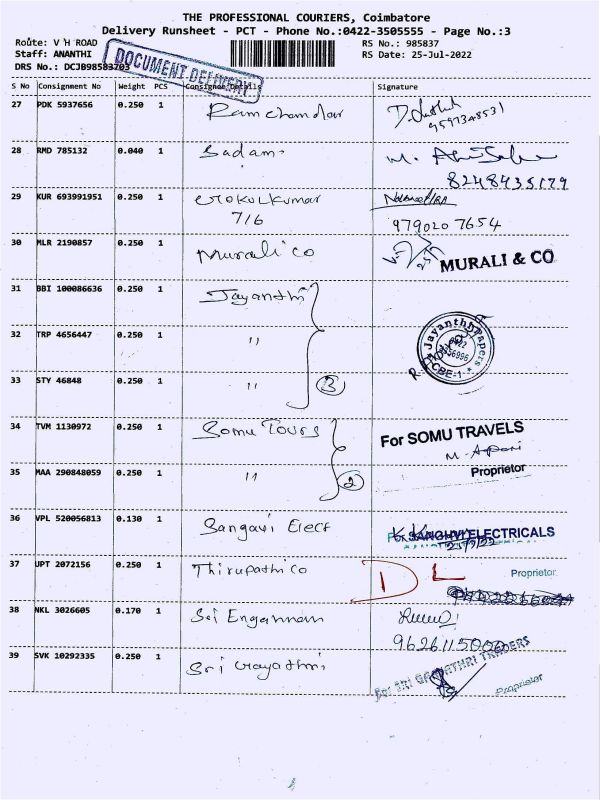 THE PROFESSIONAL COURIERS, Coimbatore
Delivery Runsheet - PCT - Phone No.:0422-3505555 - Page No.:3
Route: V H ROAD RS No.: 985837
Staff: ANANTHI RS Date: 25-Jul-2022
DRS No.: DCJB98583703
DOCUMENT DELIVERY
S No Consignment No Weight PCS Consignee Details Signature
27 PDK 5937656 0.250 1 Ramchandar
9597348531
28 RMD 785132 0.040 1 Sadam
8248435179
29 KUR 693991951 0.250 1 Gokulkumar
716 979020 7654
30 MLR 2190857 0.250 1 Murali co MURALI & CO
31 BBI 100086636 0.250 1 Jayanthi
Jayanthi Papers
CBE-1
32 TRP 4656447 0.250 1 "
33 STY 46848 0.250 1 " 3
34 TVM 1130972 0.250 1 Somu Tours For SOMU TRAVELS
35 MAA 290848059 0.250 1 " 2 Proprietor
36 VPL 520056813 0.130 1 Sangavi Elect For SANGHVI ELECTRICALS
37 UPT 2072156 0.250 1 Thirupathi co DL Proprietor
38 NKL 3026605 0.170 1 Sri Engannam
9626115000
39 SVK 10292335 0.250 1 Sri Gayathri For SRI GAYATHRI TRADERS
Proprietor